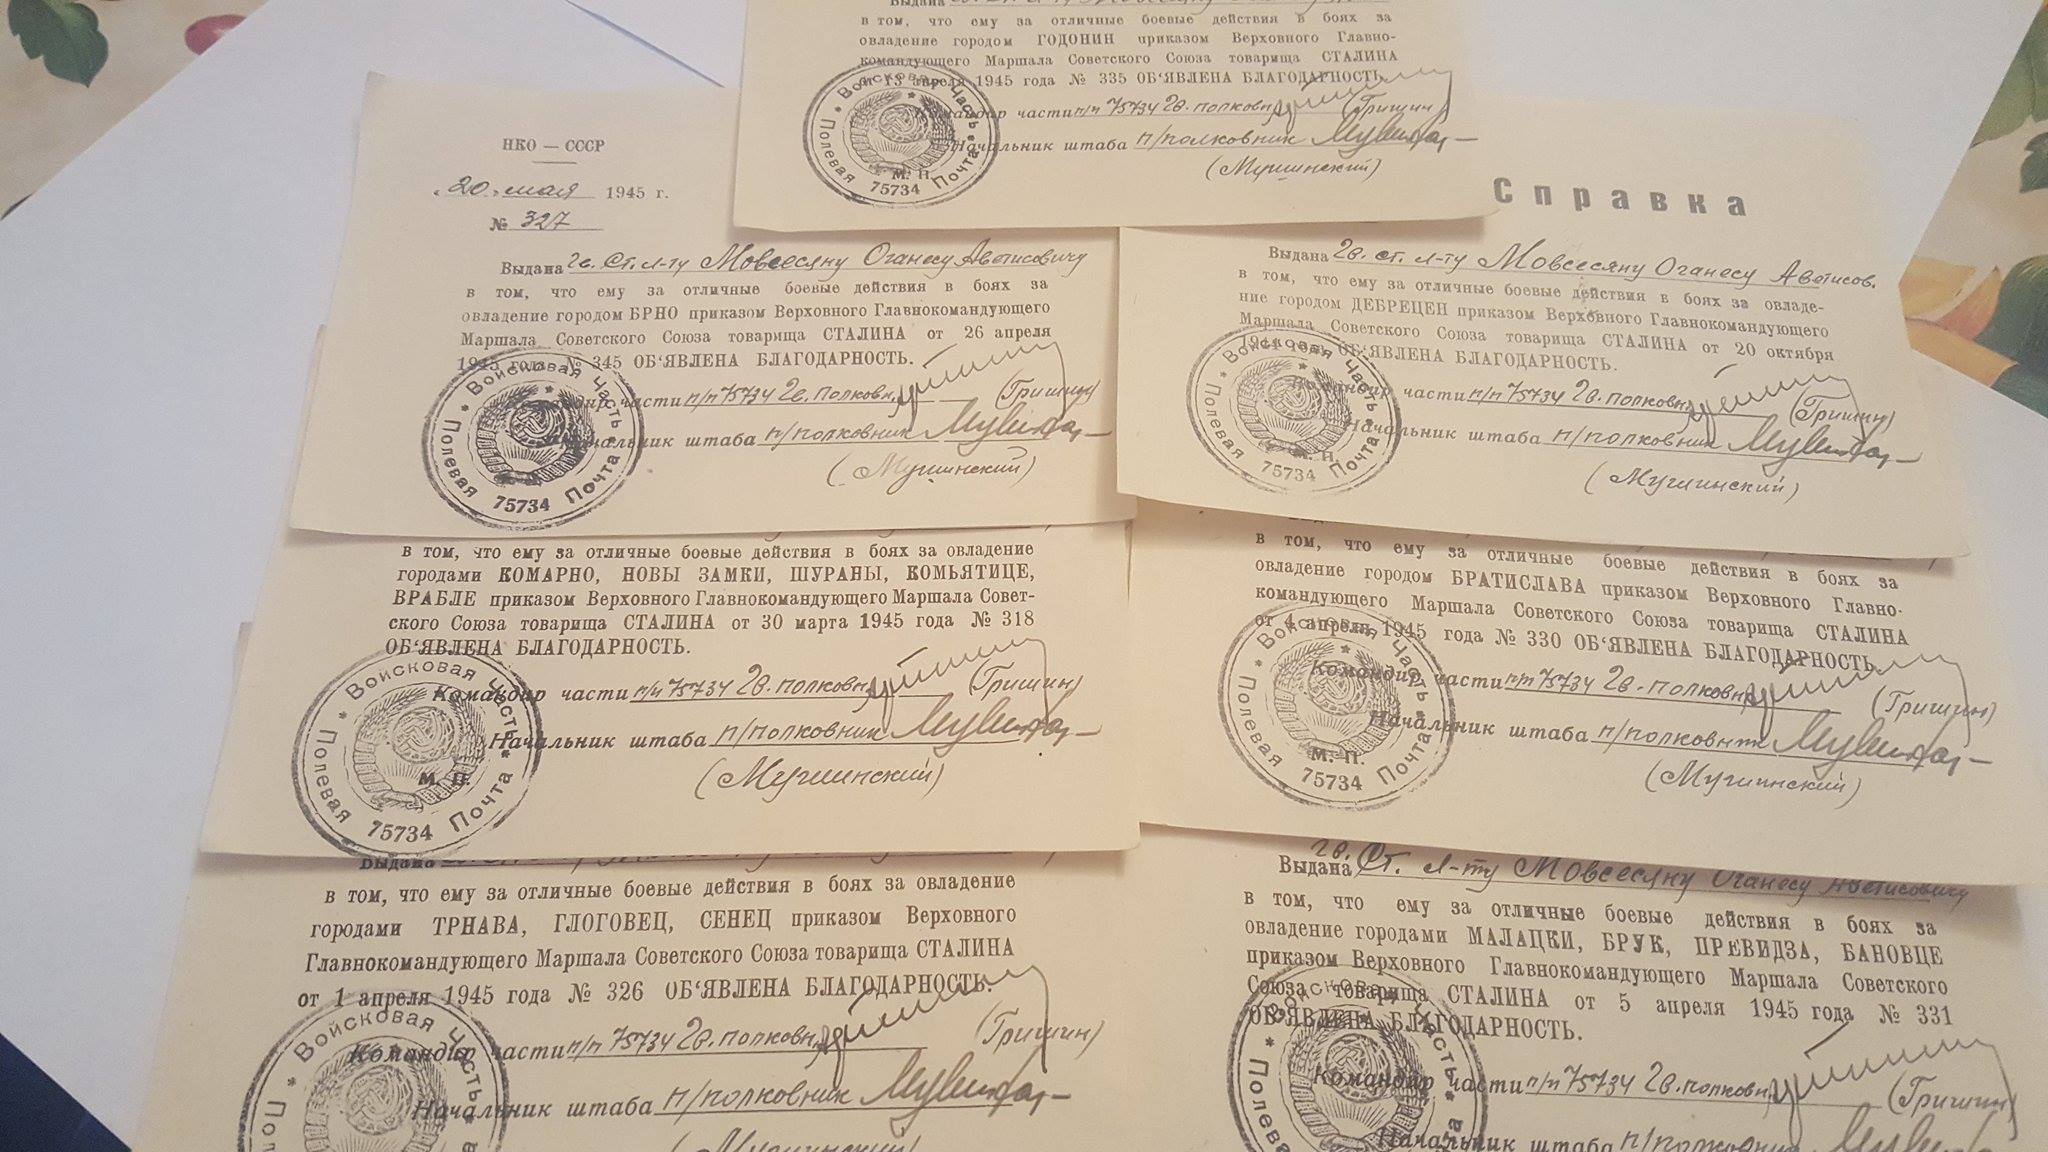 Выдана
в том, что ему за отличные боевые действия в боях за
овладение городом ГОДОНИН приказом Верховного Главно-
командующего Маршала Советского Союза товарища СТАЛИНА
от 13 апреля 1945 года № 335 ОБ‘ЯВЛЕНА БЛАГОДАРНОСТЬ.
Командир части п/п 75734 гв. полковн. (Гришин)
Начальник штаба п/полковник
(Мушинский)
М. П.
Войсковая Часть * Полевая Почта * 75734
НКО — СССР
„20“ мая 1945 г.
№ 327
Выдана гв. Ст. л-ту Мовсесяну Оганесу Аветисовичу
в том, что ему за отличные боевые действия в боях за
овладение городом БРНО приказом Верховного Главнокомандующего
Маршала Советского Союза товарища СТАЛИНА от 26 апреля
1945 года № 345 ОБ‘ЯВЛЕНА БЛАГОДАРНОСТЬ.
Командир части п/п 75734 гв. полковн. (Гришин)
Начальник штаба п/полковник
(Мушинский)
Войсковая Часть * Полевая Почта * 75734
Справка
Выдана гв. ст. л-ту Мовсесяну Оганесу Аветисов.
в том, что ему за отличные боевые действия в боях за овладе-
ние городом ДЕБРЕЦЕН приказом Верховного Главнокомандующего
Маршала Советского Союза товарища СТАЛИНА от 20 октября
ОБ‘ЯВЛЕНА БЛАГОДАРНОСТЬ.
Командир части п/п 75734 гв. полковн. (Гришин)
Начальник штаба п/полковник
(Мушинский)
М. П.
Войсковая Часть * Полевая Почта * 75734
в том, что ему за отличные боевые действия в боях за овладение
городами КОМАРНО, НОВЫ ЗАМКИ, ШУРАНЫ, КОМЬЯТИЦЕ,
ВРАБЛЕ приказом Верховного Главнокомандующего Маршала Совет-
ского Союза товарища СТАЛИНА от 30 марта 1945 года № 318
ОБ‘ЯВЛЕНА БЛАГОДАРНОСТЬ.
Командир части п/п 75734 гв. полковн. (Гришин)
Начальник штаба п/полковник
(Мушинский)
М. П.
Войсковая Часть * Полевая Почта * 75734
в том, что ему за отличные боевые действия в боях за
овладение городом БРАТИСЛАВА приказом Верховного Главно-
командующего Маршала Советского Союза товарища СТАЛИНА
от 4 апреля 1945 года № 330 ОБ‘ЯВЛЕНА БЛАГОДАРНОСТЬ
Командир части п/п 75734 гв. полковн. (Гришин)
Начальник штаба п/полковник
(Мушинский)
М. П.
Войсковая Часть * Полевая Почта * 75734
Выдана
в том, что ему за отличные боевые действия в боях за овладение
городами ТРНАВА, ГЛОГОВЕЦ, СЕНЕЦ приказом Верховного
Главнокомандующего Маршала Советского Союза товарища СТАЛИНА
от 1 апреля 1945 года № 326 ОБ‘ЯВЛЕНА БЛАГОДАРНОСТЬ.
Командир части п/п 75734 гв. полковн. (Гришин)
Начальник штаба п/полковник
(Мушинский)
Войсковая Часть * Полевая
Выдана гв. Ст. л-ту Мовсесяну Оганесу Аветисовичу
в том, что ему за отличные боевые действия в боях за
овладение городами МАЛАЦКИ, БРУК, ПРЕВИДЗА, БАНОВЦЕ
приказом Верховного Главнокомандующего Маршала Советского
Союза товарища СТАЛИНА от 5 апреля 1945 года № 331
ОБ‘ЯВЛЕНА БЛАГОДАРНОСТЬ.
Командир части п/п 75734 гв. полковн. (Гришин)
Начальник штаба п/полковник
Войсковая Часть * Полевая